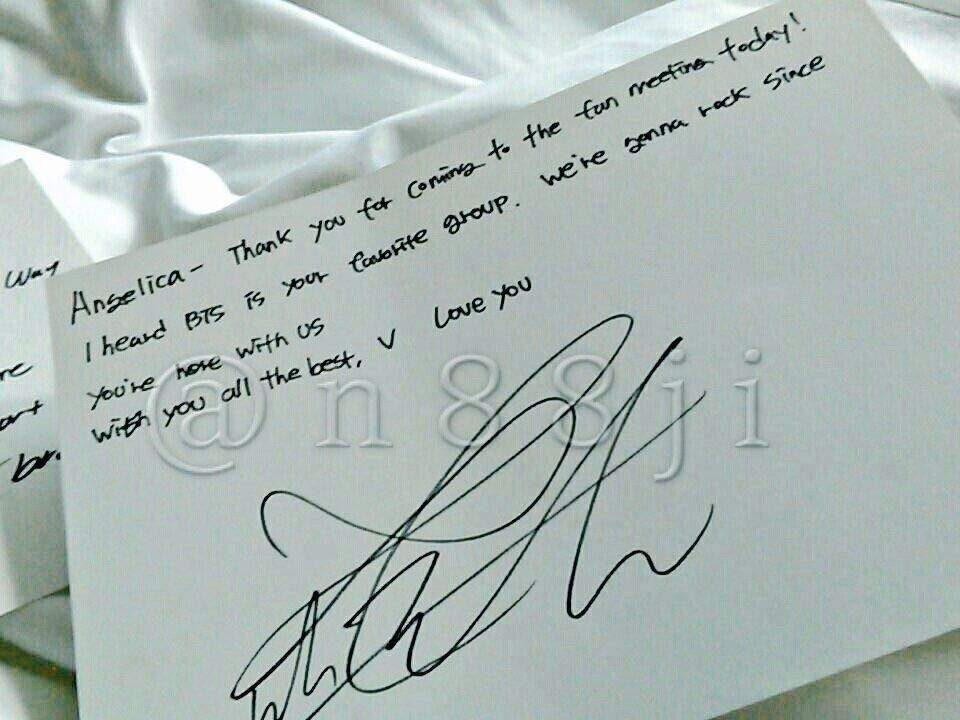 Angelica - Thank you for coming to the fan meeting today!
I heard BTS is your favorite group. We're gonna rock since
you're here with us
with you all the best, V Love you
way
re
art
br.
@n88ji